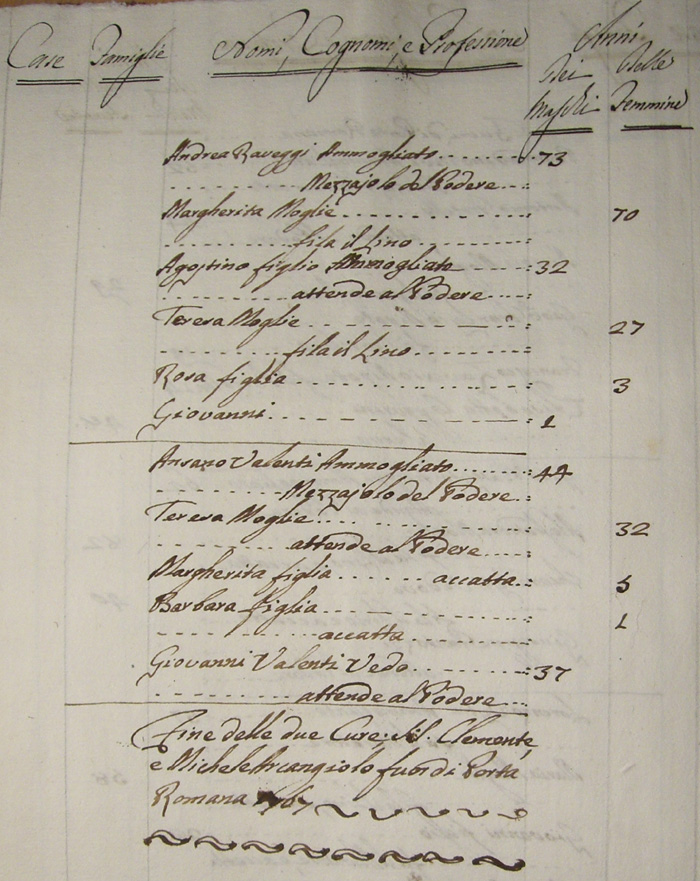 Case Famiglie Nomi, Cognomi, e Professione Anni
Dei Delle
Maschi Femmine
Andrea Raveggi Ammogliato 73
Mezzajolo del Podere
Margherita Moglie 70
fila il Lino
Agostino figlio Ammogliato 32
attende al Podere
Teresa Moglie 27
fila il Lino
Rosa figlia 3
Giovanni 1
Ansano Valenti Ammogliato 44
Mezzajolo del Podere
Teresa Moglie 32
attende al Podere
Margherita figlia accatta 5
Barbara figlia 1
accatta
Giovanni Valenti Vedo 37
attende al Podere
Fine delle due Cure Clemente,
e Michele Arcangiolo fuor di Porta
Romana 1767